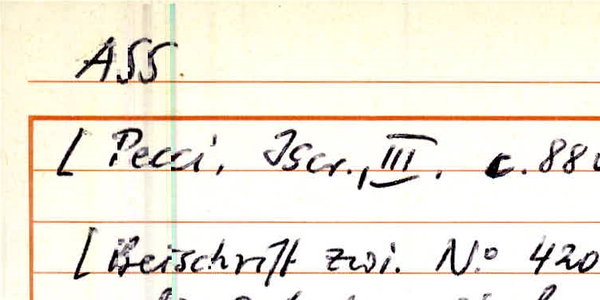 ASS.
[ Pecci, Iscr., III. c. 88
[ Beischrift zwi. No 420